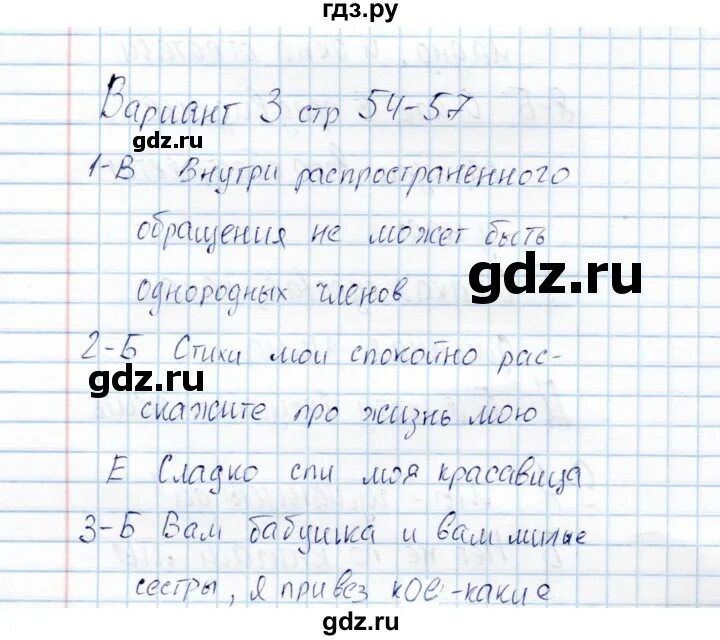 гдз.ру
Вариант 3 стр 54-57
gdz.ru
1-В Внутри распространенного
обращения не может быть
gdz.ru
однородных членов
2-Б Стихи мои спокойно рас-
gdz.ru
скажите про жизнь мою
Е Сладко спи моя красавица
3-Б Вам бабушка и вам милые
сестры, я привез кое-какие